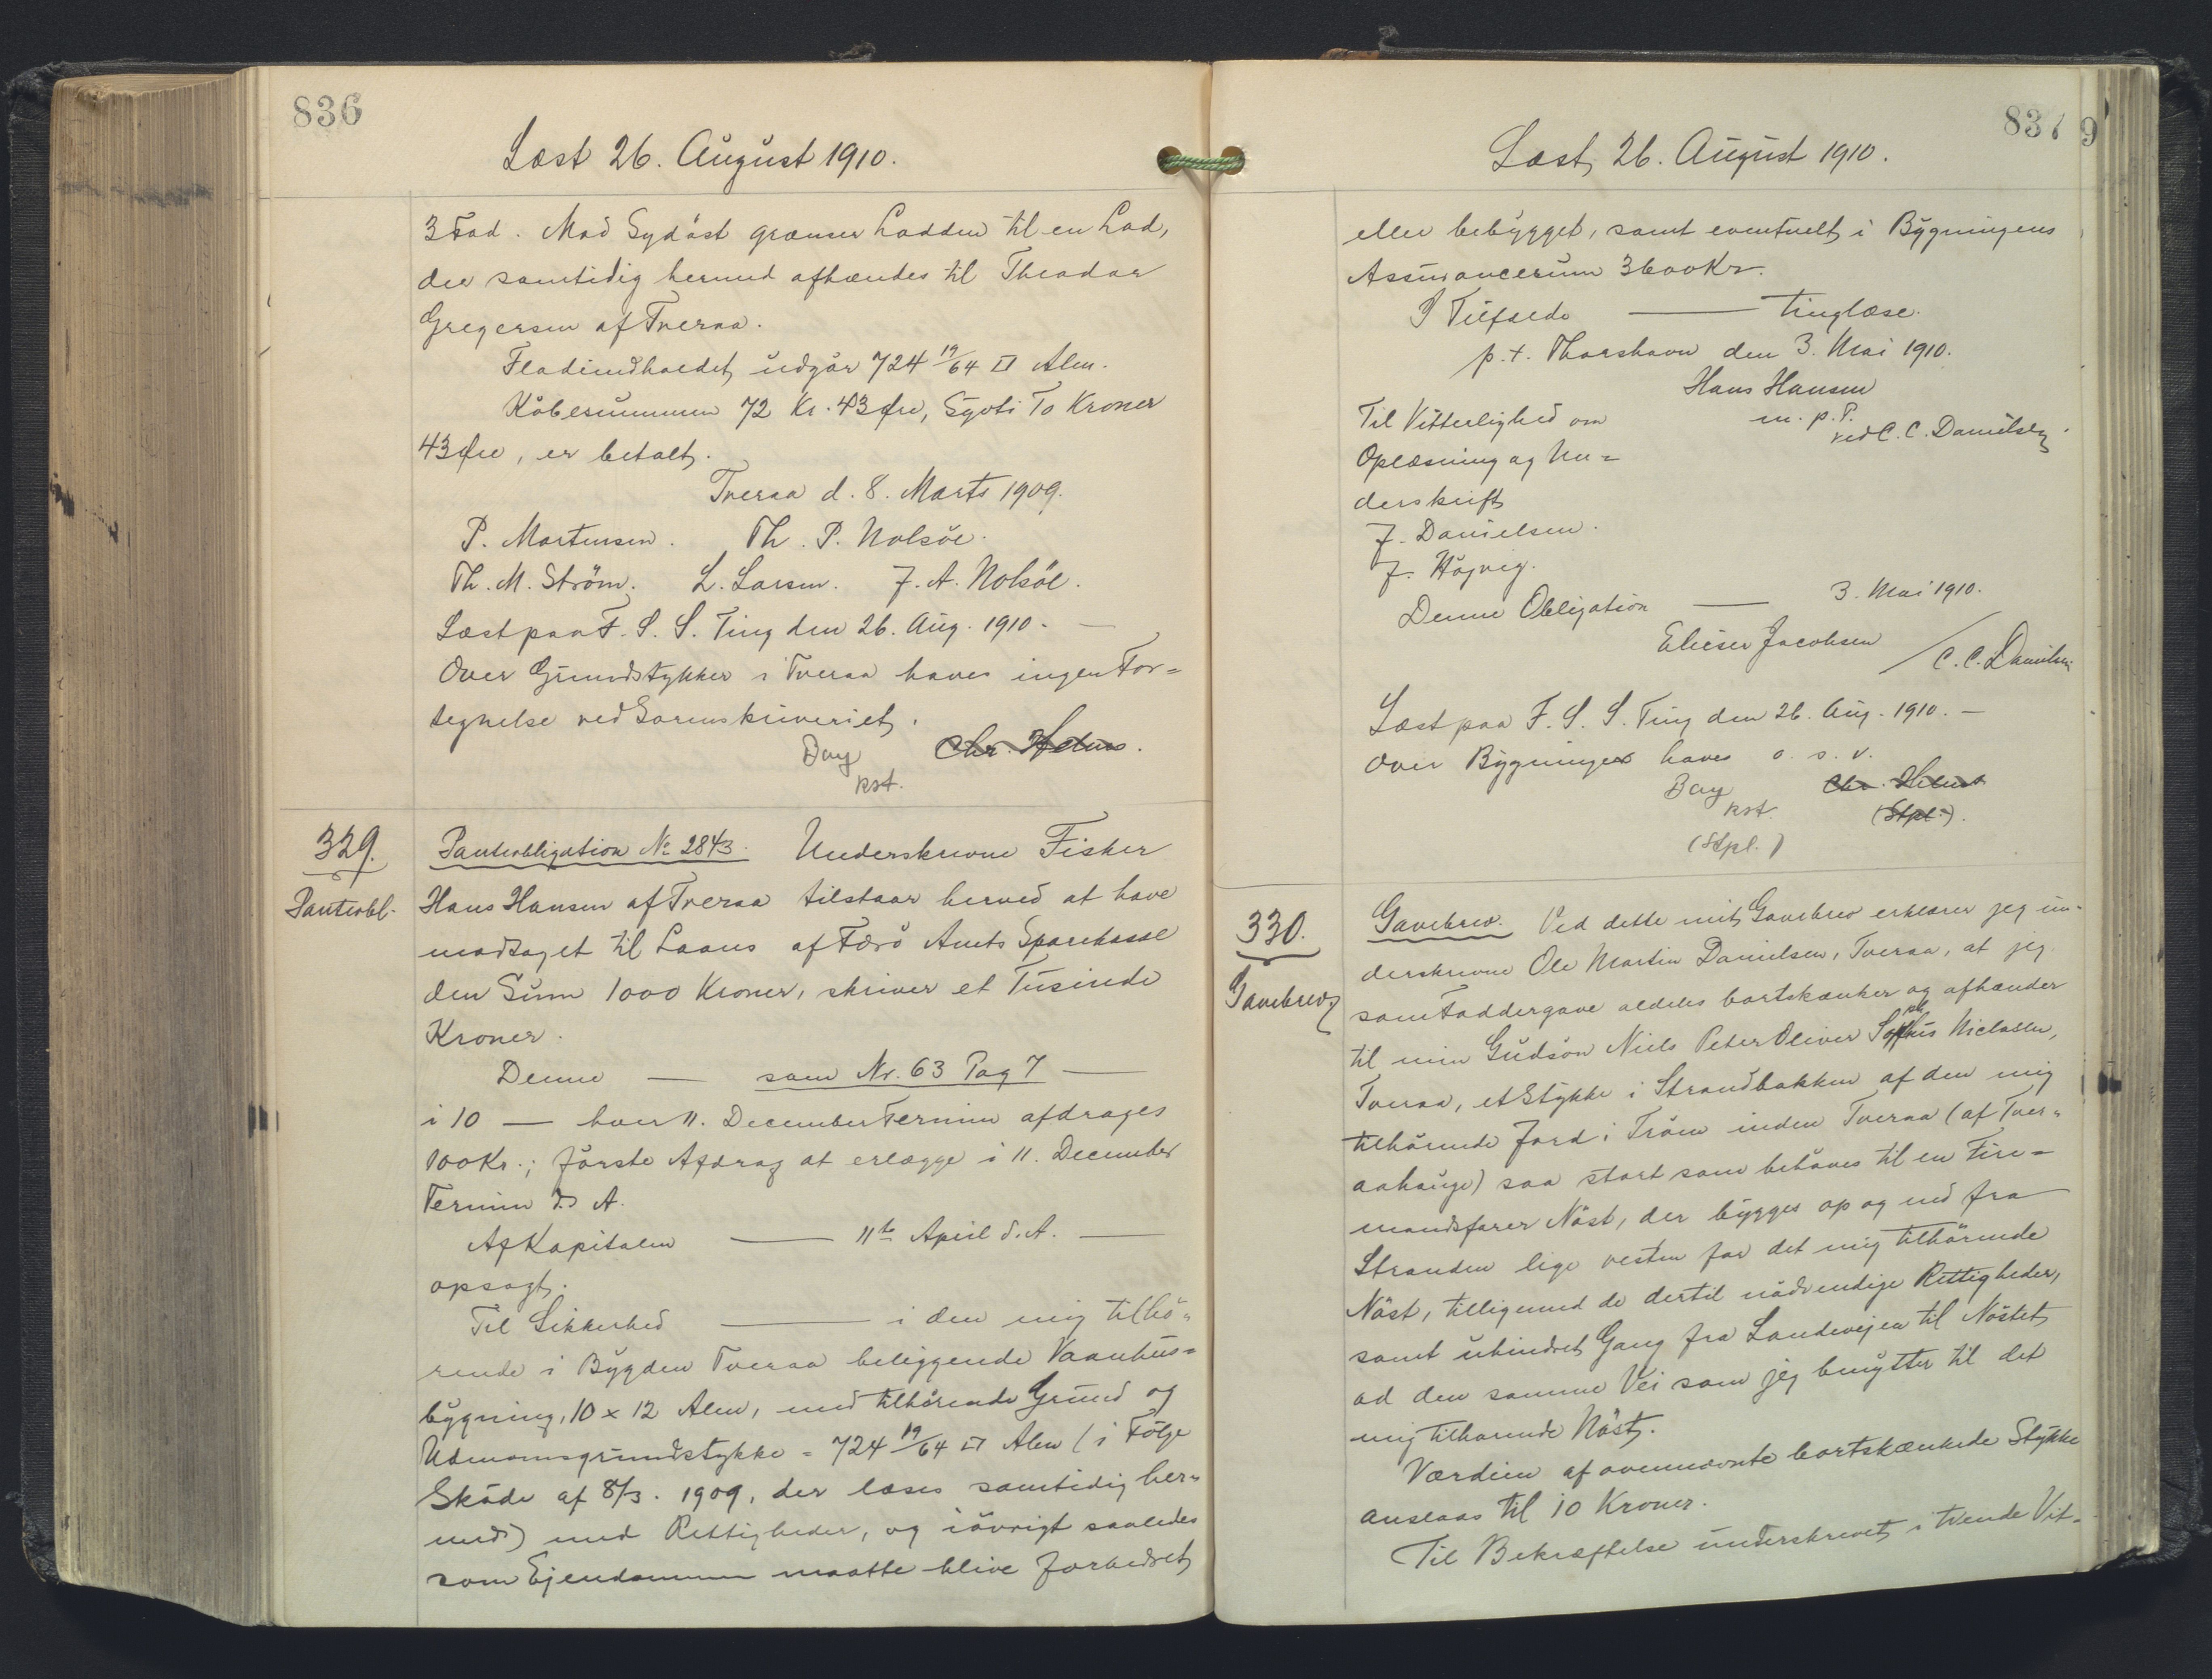 836
Læst 26. August 1910.
3 Fod. Mod Sydöst grænser Lodden til en Lod,
der samtidig hermed afhændes til Theodor
Gregersen af Tveraa.
Fladeindholdet udgör 724 19/64 □ Alen.
Köbesummen 72 Kr. 43 Øre, Syvti To Kroner
43 Øre, er betalt.
Tveraa d. 8. Marts 1909.
P. Mortensen. Th. P. Nolsöe.
Th. M. Ström. L. Larsen. J. A. Nolsöe.
Læst paa F. S. S. Ting den 26. Aug. 1910. —
Over Grundstykker i Tveraa haves ingen For=
tegnelse ved Sorenskriveriet.
Bay Chr. Helms.
kst.
329.
Panterbl.
Panteobligation № 2843. Underskrevne Fisker
Hans Hansen af Tveraa tilstaar herved at have
modtaget til Laans af Færö Amts Sparekasse
den Sum 1000 Kroner, skriver et Tusinde
Kroner.
Denne — som Nr. 63 Pag 7 —
i 10 — hver 11. December Termin afdrages
100 Kr.; förste Afdrag at erlægge i 11. December
Termin d. A.
Af Kapitalen — 11te April d. A. —
opsagt.
Til Sikkerhed — i den mig tilhö=
rende i Bygden Tveraa beliggende Vaanhus=
bygning, 10 x 12 Alen, med tilhörende Grund og
Udmarksgrundstykke = 724 19/64 □ Alen (i Fölge
Sköde af 8/3. 1909, der læses samtidig her=
med) med Rettigheder, og iövrigt saaledes
som Ejendommen maatte blive forbedret
837 9
Læst 26. August 1910.
eller bebygget, samt eventuelt i Bygningens
Assurancesum 3600 Kr.
I Tilfælde — tinglæse.
p. t. Thorshavn den 3. Mai 1910.
Hans Hansen
m. p. P.
ved C. C. Danielsen.
Til Vitterlighed om
Oplæsning og Un=
derskrift
J. Danielsen.
J. Höjvig.
Denne Obligation — 3. Mai 1910.
Elieser Jacobsen / C. C. Danielsen
Læst paa F. S. S. Ting den 26. Aug. 1910. —
Over Bygninger haves o. s. v.
Bay Chr. Helms
kst. (Stpl.).
(Stpl.)
330.
Gavebrev
Gavebrev. Ved dette mit Gavebrev erklærer jeg un=
derskrevne Ole Martin Danielsen, Tveraa, at jeg
som Faddergave aldeles bortskænker og afhænder
til min Gudsön Niels Peter Oliver Sophus Niclasen,
Tveraa, et Stykke i Strandbakken af den mig
tilhörende Jord i Tröen inden Tveraa (af Tver=
aahauge) saa stort som behöves til en Fire=
mandsfarer Nöst, der bygges op og ned fra
Stranden lige vesten for det mig tilhörende
Nöst, tilligemed de dertil nödvendige Rettigheder,
samt uhindret Gang fra Landevejen til Nöstet
ad den samme Vei som jeg benytter til det
mig tilhørende Nöst.
Værdien af ovennævnte bortskænkede Stykke
anslaas til 10 Kroner.
Til Bekræftelse underskrevet i tvende Vit=